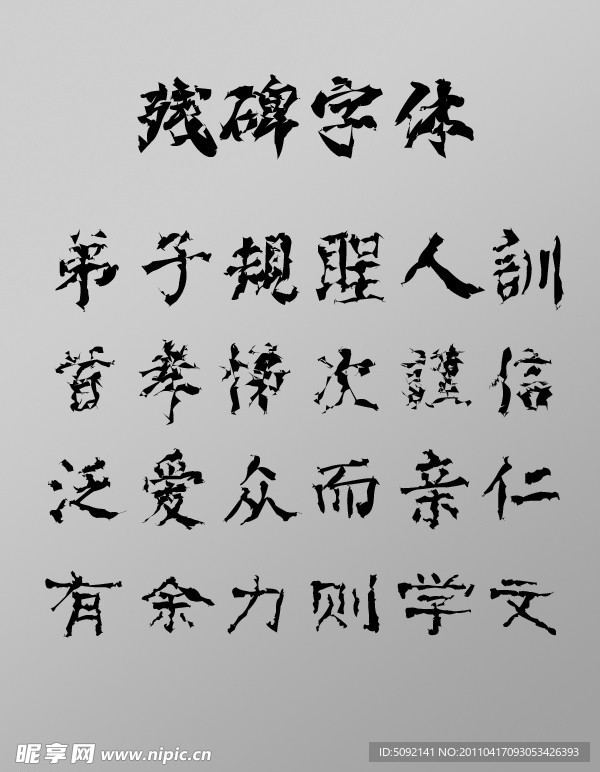 残碑字体
弟子規聖人訓
首孝悌次謹信
泛爱众而亲仁
有余力则学文
昵享网 www.nipic.cn
ID:5092141 NO:20110417093053426393